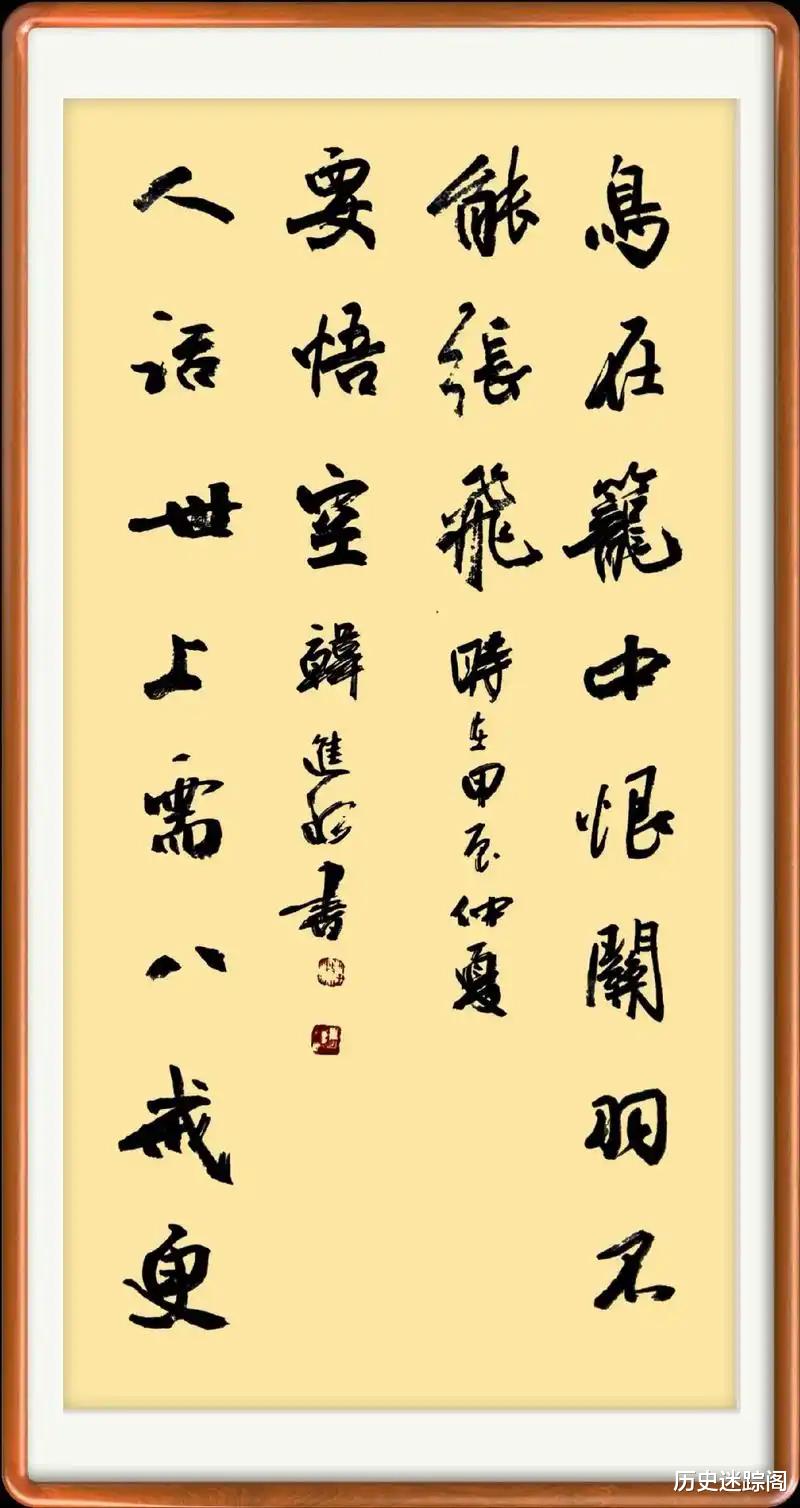 鳥在籠中恨關羽不
能張飛 時在甲辰仲夏
人活世上需八戒更
要悟空 韓進書
历史迷踪阁